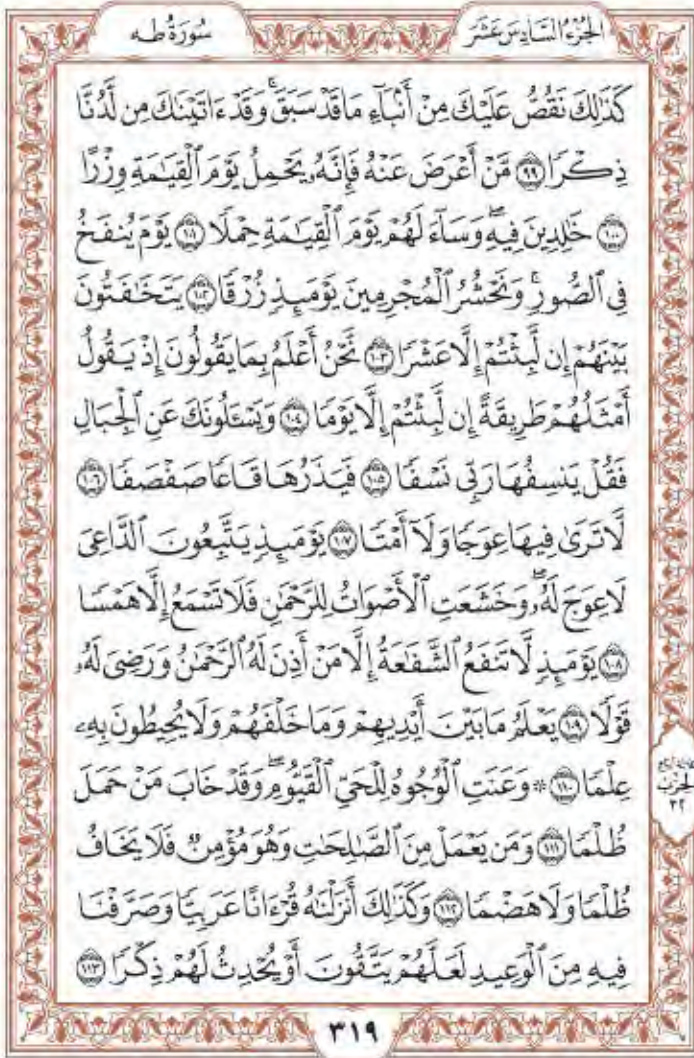 الجزء السادس عشر
سورة طه
كَذَٰلِكَ نَقُصُّ عَلَيْكَ مِنْ أَنۢبَآءِ مَا قَدْ سَبَقَۚ وَقَدْ ءَاتَيْنَٰكَ مِن لَّدُنَّا
ذِكْرًا ۝٩٩ مَّنْ أَعْرَضَ عَنْهُ فَإِنَّهُۥ يَحْمِلُ يَوْمَ ٱلْقِيَٰمَةِ وِزْرًا
۝١٠٠ خَٰلِدِينَ فِيهِۖ وَسَآءَ لَهُمْ يَوْمَ ٱلْقِيَٰمَةِ حِمْلًا ۝١٠١ يَوْمَ يُنفَخُ
فِى ٱلصُّورِۚ وَنَحْشُرُ ٱلْمُجْرِمِينَ يَوْمَئِذٍ زُرْقًا ۝١٠٢ يَتَخَٰفَتُونَ
بَيْنَهُمْ إِن لَّبِثْتُمْ إِلَّا عَشْرًا ۝١٠٣ نَّحْنُ أَعْلَمُ بِمَا يَقُولُونَ إِذْ يَقُولُ
أَمْثَلُهُمْ طَرِيقَةً إِن لَّبِثْتُمْ إِلَّا يَوْمًا ۝١٠٤ وَيَسْـَٔلُونَكَ عَنِ ٱلْجِبَالِ
فَقُلْ يَنسِفُهَا رَبِّى نَسْفًا ۝١٠٥ فَيَذَرُهَا قَاعًا صَفْصَفًا ۝١٠٦
لَّا تَرَىٰ فِيهَا عِوَجًا وَلَآ أَمْتًا ۝١٠٧ يَوْمَئِذٍ يَتَّبِعُونَ ٱلدَّاعِىَ
لَا عِوَجَ لَهُۥۖ وَخَشَعَتِ ٱلْأَصْوَاتُ لِلرَّحْمَٰنِ فَلَا تَسْمَعُ إِلَّا هَمْسًا
۝١٠٨ يَوْمَئِذٍ لَّا تَنفَعُ ٱلشَّفَٰعَةُ إِلَّا مَنْ أَذِنَ لَهُ ٱلرَّحْمَٰنُ وَرَضِىَ لَهُۥ
قَوْلًا ۝١٠٩ يَعْلَمُ مَا بَيْنَ أَيْدِيهِمْ وَمَا خَلْفَهُمْ وَلَا يُحِيطُونَ بِهِۦ
عِلْمًا ۝١١٠ ۞ وَعَنَتِ ٱلْوُجُوهُ لِلْحَىِّ ٱلْقَيُّومِۖ وَقَدْ خَابَ مَنْ حَمَلَ
ظُلْمًا ۝١١١ وَمَن يَعْمَلْ مِنَ ٱلصَّٰلِحَٰتِ وَهُوَ مُؤْمِنٌ فَلَا يَخَافُ
ظُلْمًا وَلَا هَضْمًا ۝١١٢ وَكَذَٰلِكَ أَنزَلْنَٰهُ قُرْءَانًا عَرَبِيًّا وَصَرَّفْنَا
فِيهِ مِنَ ٱلْوَعِيدِ لَعَلَّهُمْ يَتَّقُونَ أَوْ يُحْدِثُ لَهُمْ ذِكْرًا ۝١١٣
الحزب
٣٢
٣١٩